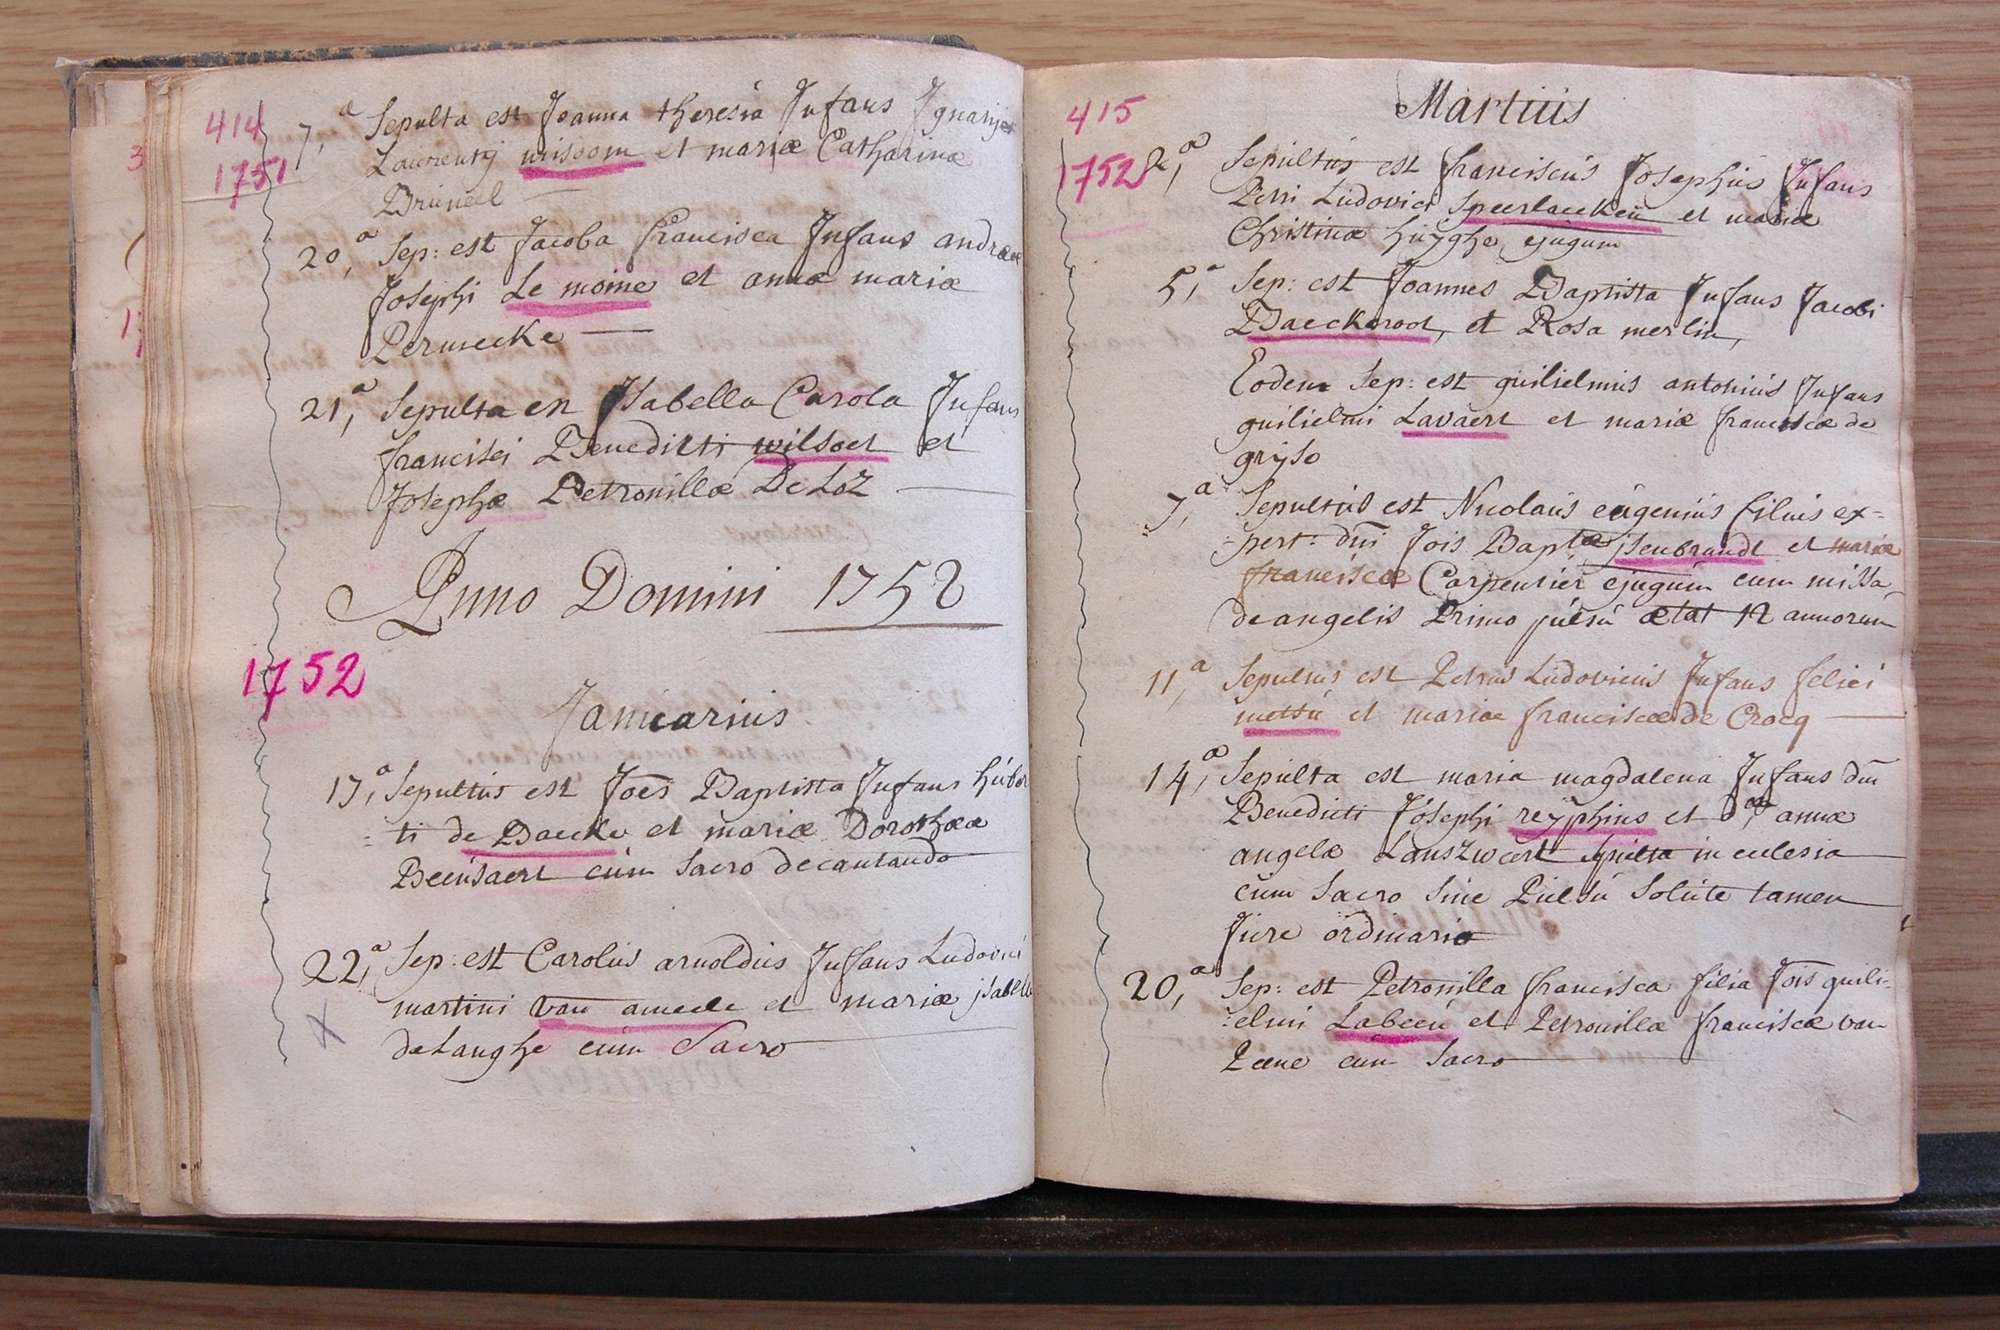 414
1751
7,a Sepulta est Joanna theresia Infans Ignatij et
Laurentij wisdom et mariæ Catharinæ
Bruneel
20,a Sep: est Jacoba francisca Infans andreæ
Josephi Le moine et annæ mariæ
Permeeke
21,a Sepulta est Isabella Carola Infans
francisci Benedicti wilsoet et
Josephæ Petronillæ De Loz
Anno Domini 1752
1752
Januarius
17,a Sepultus est Joes Baptista Infans huber
=ti de Baecke et mariæ Dorotheæ
Beeusaert cum Sacro decantando
22,a Sep: est Carolus arnoldus Infans Ludovici
martini van ameele et mariæ jsabellæ
de Langhe cum Sacro
415
1752
Martius
2,a Sepultus est franciscus Josephus Infans
Petri Ludovici Speerlaecken et mariæ
Christinæ huyghe ejugum
5,a Sep: est Joannes Baptista Infans Jacobi
Baeckeroot, et Rosa merlin,
Eodem Sep: est guilielmus antonius Infans
guilielmi Lavaert et mariæ franciscæ de
gryse
7,a Sepultus est Nicolaus eugenius filius ex=
pert: dni Jois Baptæ jsenbrandt et mariæ
franciscæ Carpentier ejugum cum missa
de angelis Primo pulsu ætat 12 annorum
11,a Sepultus est Petrus Ludovicus Infans felici
mettu et mariæ franciscæ de Crocq
14,a Sepulta est maria magdalena Infans dni
Benedicti Josephi reyphins et annæ
angelæ Lanszweert Sepulta in eclesia
cum Sacro Sine Pulsu Solute tamen
Jure ordinario
20,a Sep: est Petronilla francisca filia Jois guili=
:elmi Labeeu et Petronillæ franciscæ van
Peene cum Sacro